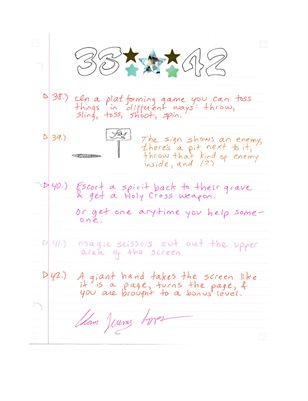 38 42
38.) In a platforming game you can toss
things in different ways: throw,
sling, toss, shoot, spin.
39.) The sign shows an enemy,
there's a pit next to it,
throw that kind of enemy
inside, and !?
40.) Escort a spirit back to their grave
& get a Holy Cross weapon.
Or get one anytime you help some-
one.
41.) Magic scissors cut out the upper
area of the screen.
42.) A giant hand takes the screen like
it is a page, turns the page, &
you are brought to a bonus level.